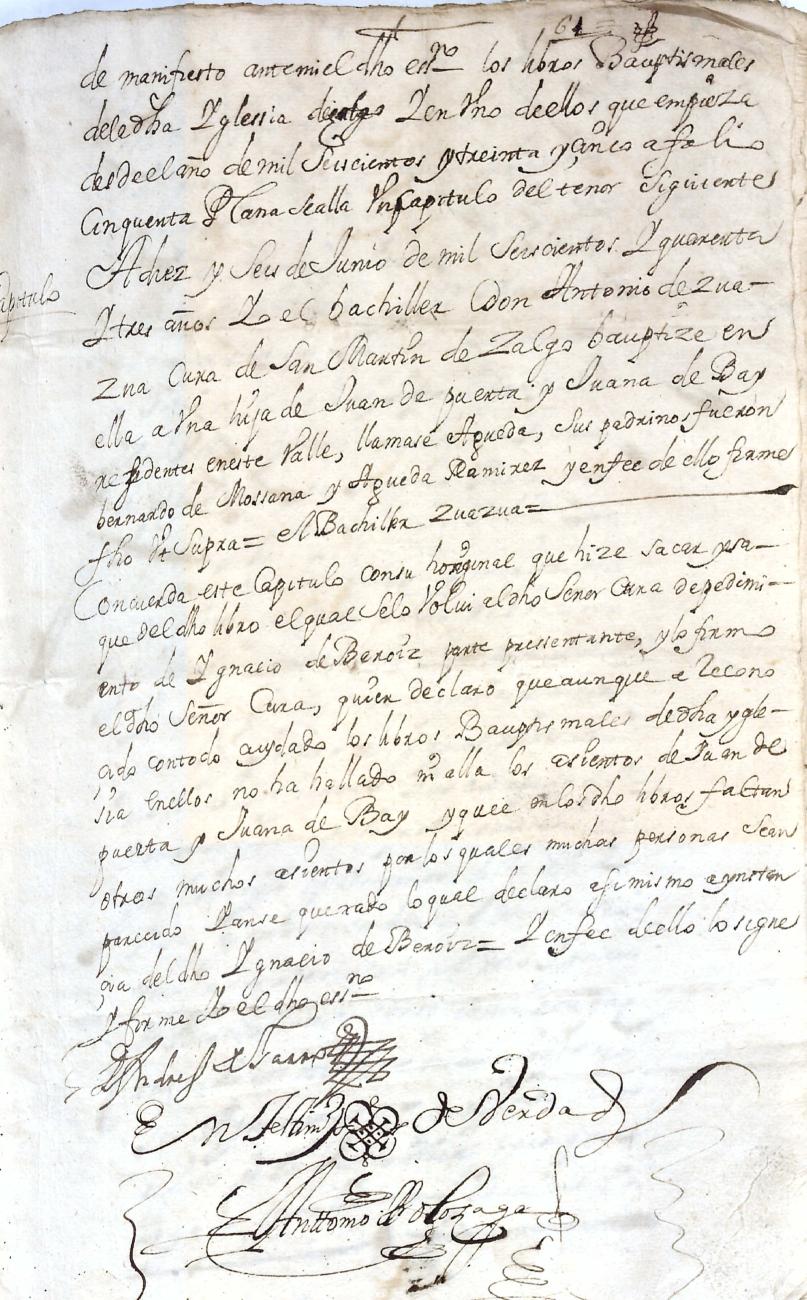 64
de manifiesto antemi el dho essno los libros Bauptismales
dela dha Yglessia Yen Vno deellos que empieza
desdeel año de mil Seiscientos y treinta y çinco a folio
Cinquenta Plana sealla Vn Capitulo del tenor siguiente
Capitulo
A diez y Seis de Junio de mil Seiscientos Y quarenta
Y tres años Yo el bachiller Don Antonio de zua-
zua Cura de San Martin de Zalgo bauptize en
ella a Vna hija de Juan de puerta y Juana de Bay
residentes eneste Valle, llamase Agueda, sus padrinos fueron
bernardo de Mossana y Agueda Ramirez y enfee de ello firme
fho Vt Supra= el Bachiller zuazua=
Concuerda este Capitulo consu horiginal que hize sacar y sa-
que del dho libro el qual selo Volui al dho Señor Cura depedimi-
ento de Ygnacio de Beroiz parte pressentante, y lo firmo
el dho Señor Cura, quien declaro queaunque a recono
çido contodo cuydado los libros Bauptismales de dha ygle-
sia enellos no ha hallado ni alla los asientos de Juan de
puerta y Juana de Bay y quee enlosdho libros faltan
otros muchos asientos por los quales muchas personas sean
pareçido Yanse quexado lo qual declaro asimismo aynstan
çia del dho Ygnacio de Beroiz= Y enfee deello lo signe
Y firme Yo el dho essno
En Testimo de Verdad
Anttonio de Olozaga